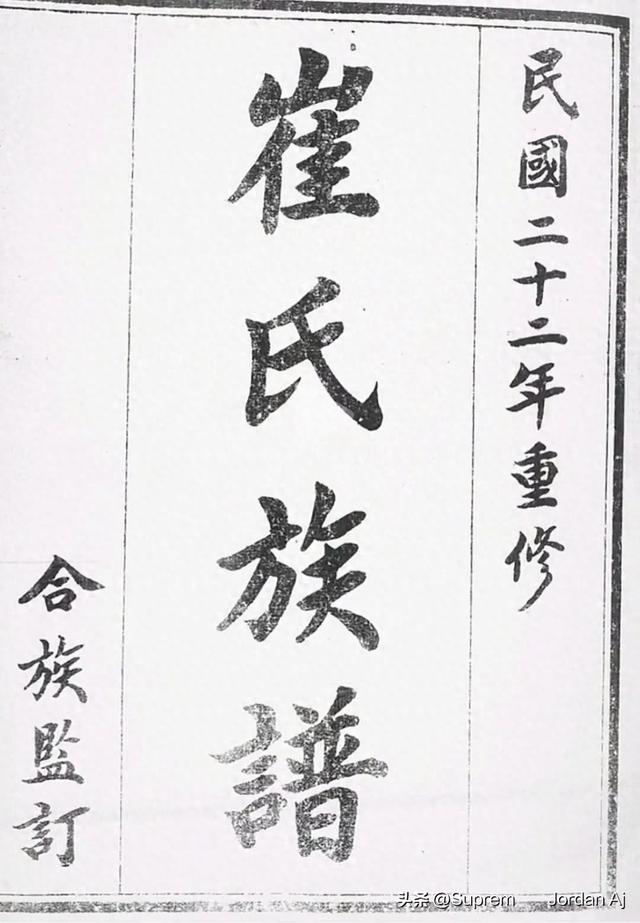 民國二十二年重修
崔氏族譜
合族監訂
头条 @Suprem Jordan Aj